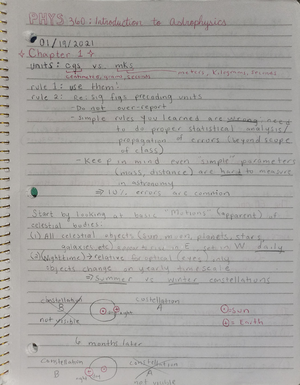 PHYS 360: Introduction to Astrophysics
01/19/2021
Chapter 1
units: cgs vs. mks
centimeters, gram, seconds meters, kilograms, seconds
rule 1: use them!
rule 2: Re: sig figs preceding units
- Do not over-report
- Simple rules you learned are wrong, need
to do proper statistical analysis/
propagation of errors (beyond scope
of class)
- Keep in mind even "simple" parameters
(mass, distance) are hard to measure
in astronomy
⇒ 10% errors are common
Start by looking at basic "motions" (apparent) of
celestial bodies:
(1) All celestial objects (sun, moon, planets, stars,
galaxies, etc) in E, set in W daily
(2) (Nighttime) → relative for optical (eyes) only
objects change on yearly timescale
⇒ Summer vs winter constellations
constellation B
not visible
constellation A
night
⊙ = sun
⊕ = Earth
6 months later
constellation B
night
constellation A
not visible